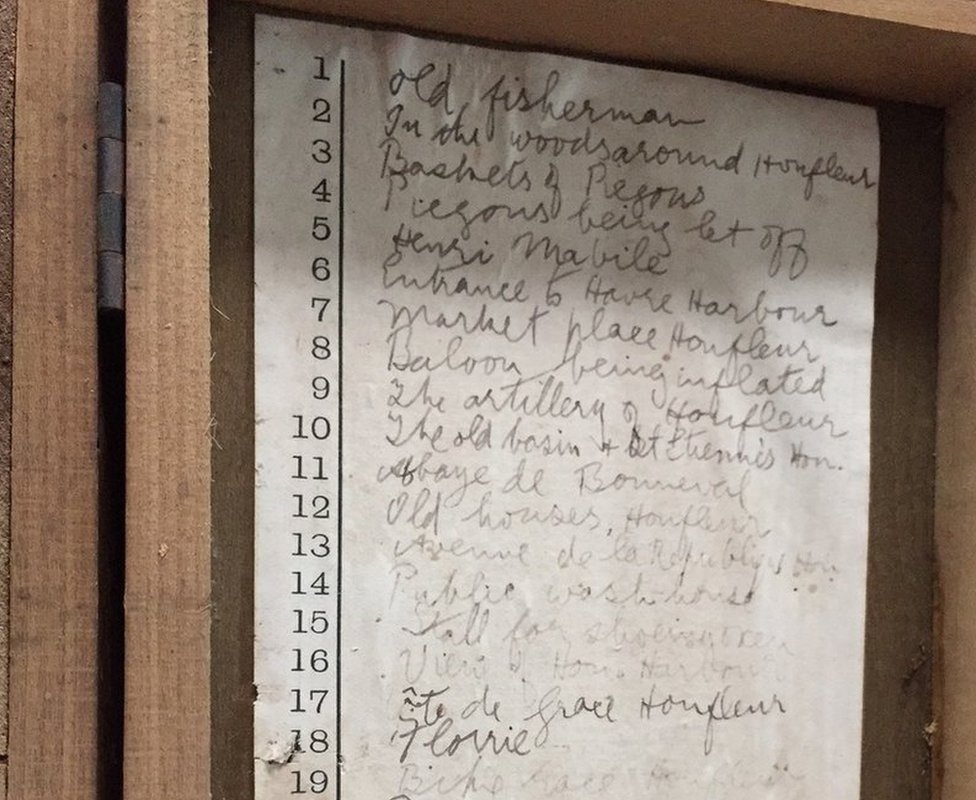 1 Old fisherman
2 In the woods around Honfleur
3 Baskets of Piegons
4 Piegons being let off
5 Henri Mabile
6 Entrance to Havre Harbour
7 Market place Honfleur
8 Baloon being inflated
9 The artillery of Honfleur
10 The old basin + St Etienne's Hon.
11 Abbaye de Bonneval
12 Old houses, Honfleur
13 Avenue de la Republique Hon
14 Public wash-house
15 Stall for shoeing oxen
16 View of Hon. Harbour
17 Côte de Grace Honfleur
18 Florrie
19 Honfleur